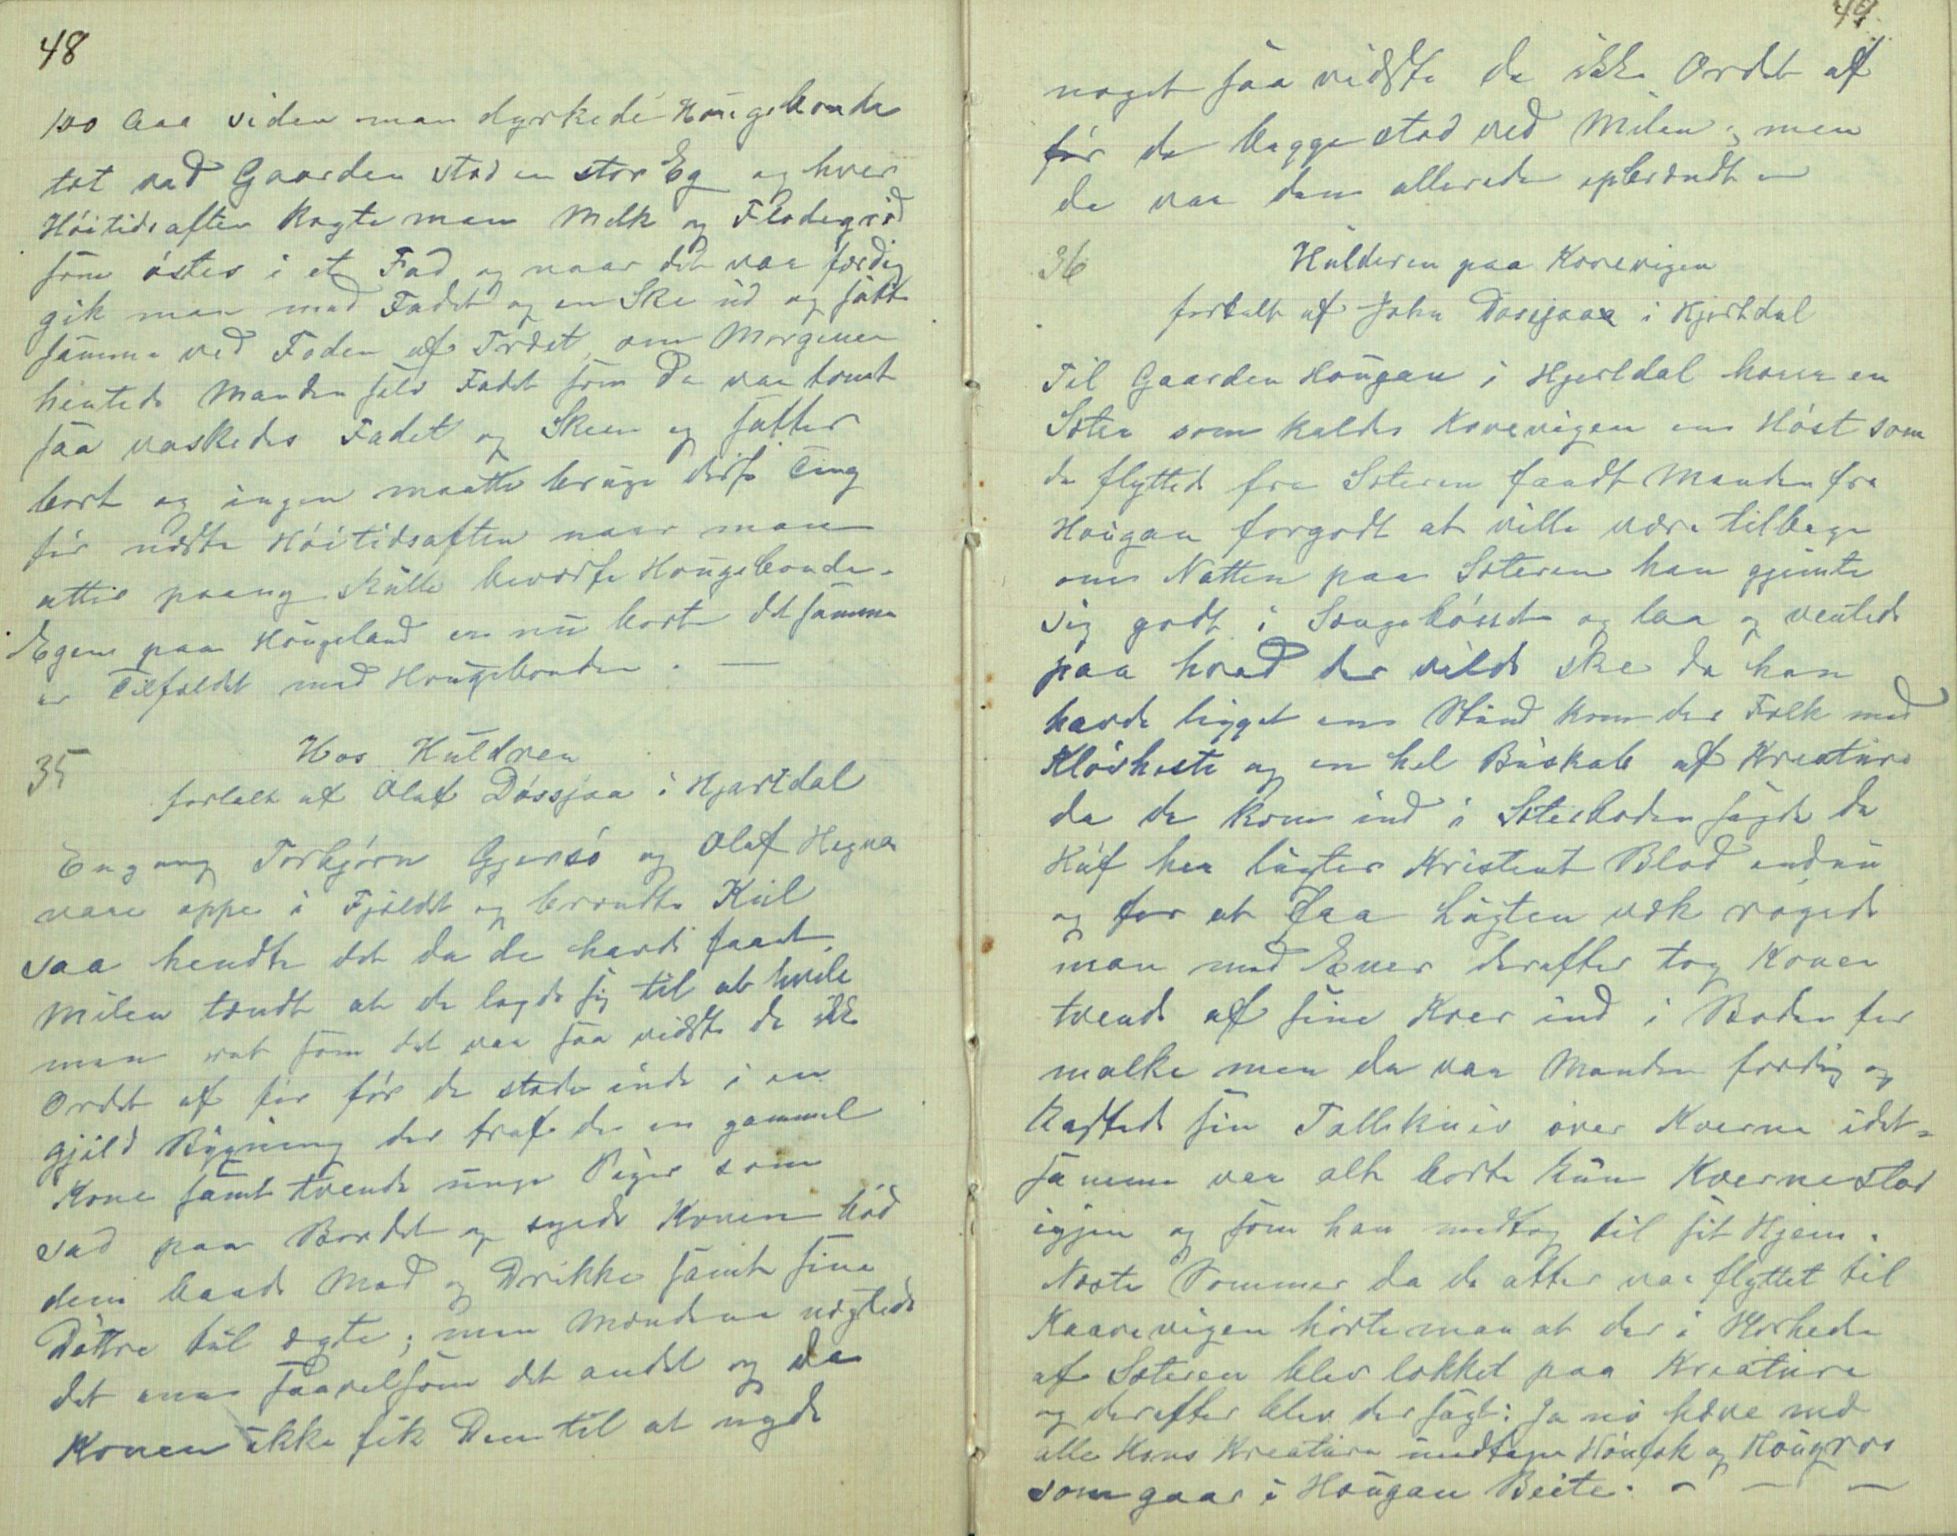 48
100 Aar siden man dyrkede Hougebonde
tæt ved Gaarden stod en stor Eg og hver
Høitidsaften kogte man Melk og Flødegrød
som östes i et Fad og naar det var færdig
gik man med Fadet og en Ske ud og satte
samme ved Foden af Træet, om Morgenen
hentede Manden selv Fadet som da var tomt
saa vaskedes Fadet og Skeen og sattes
bort og ingen maatte bruge disse Ting
før næste Høitidsaften naar man
atter paany skulle beværte Hougebonde.
Egen paa Hougeland er nu borte det samme
er Tilfældet med Hougebonden. —
35
Hos Huldren
fortalt af Olaf Døssjaa i Hjartdal
Engang Torbjørn Gjersö og Olaf Hegna
vare oppe i Fjeldet og brændte Kul
saa hendte det da de havde faaet
Milen tændt at de lagde sig til at hvile
men ret som det var saa vidste de ikke
Ordet af før før de stode inde i en
gjild Bygning der traf de en gammel
Kone samt tvende unge Piger som
sad paa Bordet og syede Konen bød
dem baade Mad og Drikke samt sine
Døttre til ægte; men Mændene nægtede
det ene saavelsom det andet og da
Konen ikke fik Dem til at nyde
49.
noget saa vidste de ikke Ordet af
før de begge stod ved Milen; men
da var den allerede opbrændt —
36
Hulderen paa Korevigen
fortalt af John Døssjaa i Hjertdal
Til Gaarden Hougan i Hjertdal hører en
Sæter som kaldes Korevigen en Høst som
de flyttede fra Sæteren fandt Manden fra
Hougan forgodt at ville være tilbage
om Natten paa Sæteren han gjemte
sig godt i Sengebósset og laa og ventede
paa hvad der vilde ske da han
havde ligget en Stund kom der Folk med
Kløvheste og en hel Buskab af Kreature
da de kom ind i Sæterboden sagde de
Huf her lugter Kristent Blod endnu
og for at faa Lugten væk røgede
man med Ener derefter tog Konen
tvende af sine Køer ind i Boden for
malke men da var Manden færdig og
kastede sin Tollekniv over Kverne idet-
samme var alt borte kun Kvernestod
igjen og som han medtog til sit Hjem.
Næste Sommer da de atter var flyttet til
Kaarevigen hörte man at der i Nærheden
af Sæteren blev lokket paa Kreature
og derefter blev der sagt: Ja nu have med
alle Hans Kreature undtagen Hóufak og Hougros
som gaar i Hougan Beite. — — —